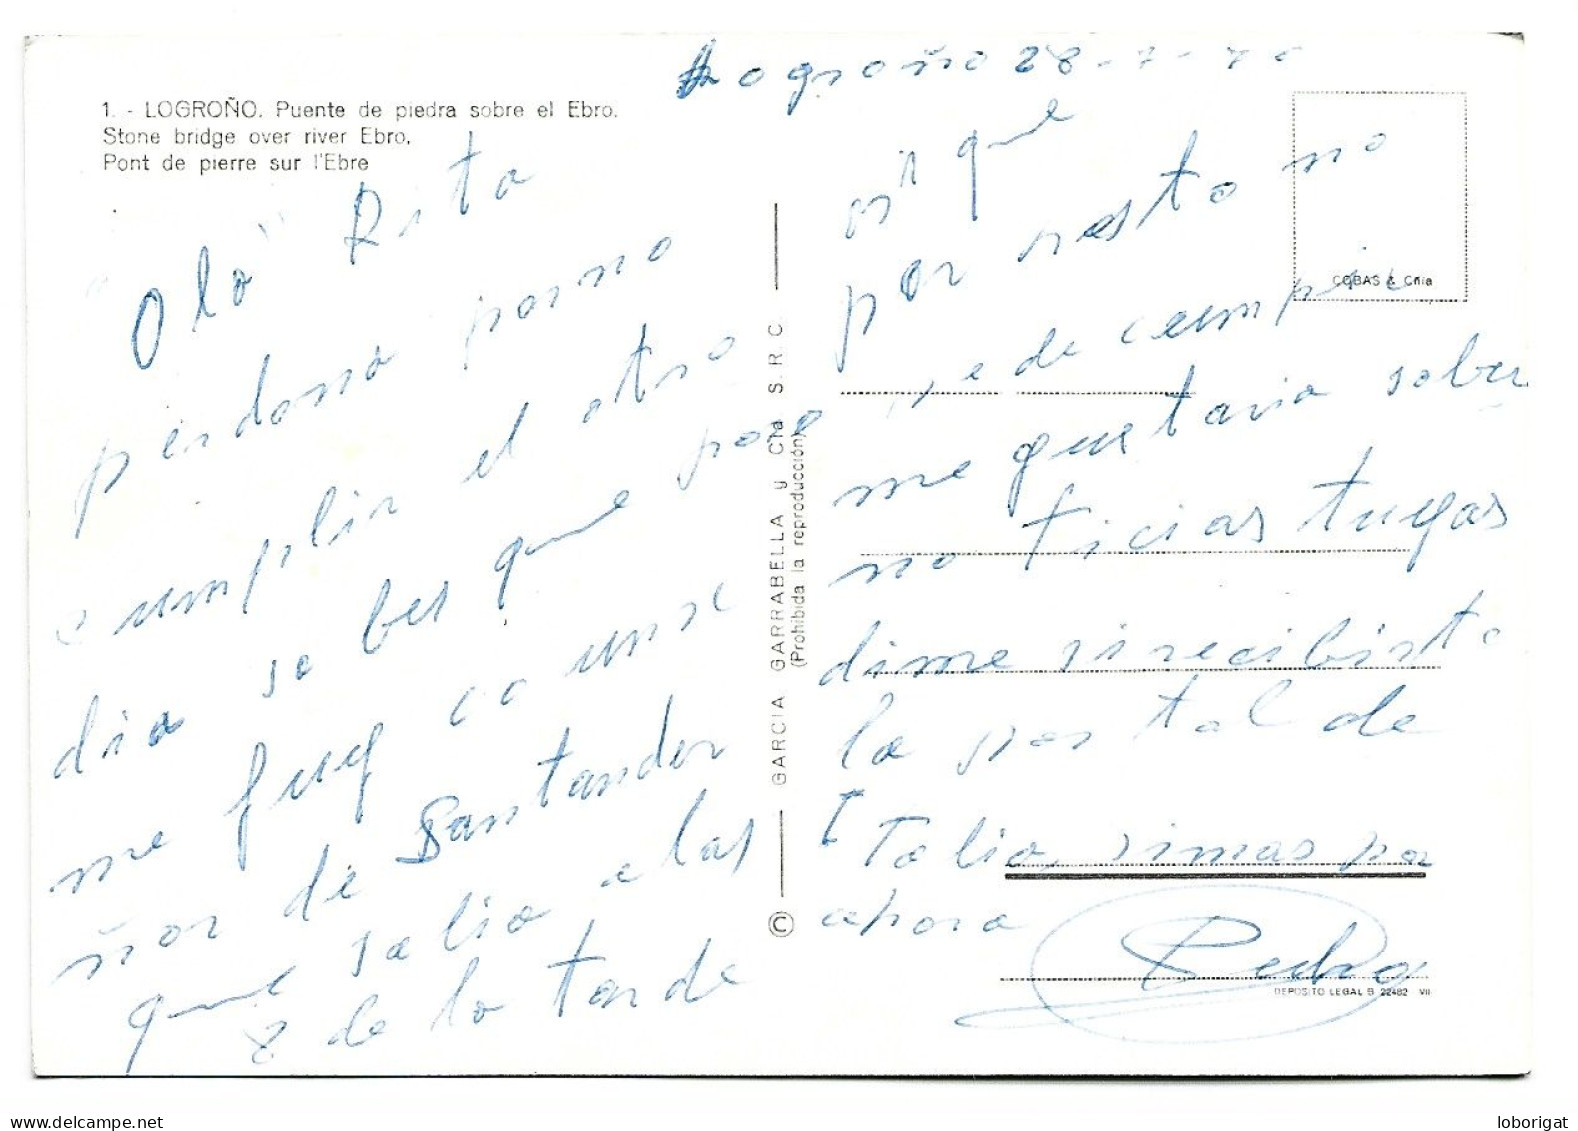 Logroño 28-7-70
1. - LOGROÑO. Puente de piedra sobre el Ebro.
Stone bridge over river Ebro.
Pont de pierre sur l'Ebre
"Ola" Rita
perdona por no
cumplir el otro
dia sabes que pose
me fuy co un se
ñor de Santander
que salio a las
8 de la tarde
asi que
por resto no
pude cumplir
me gustaria saber
noticias tuyas
dime si recibiste
la postal de
Italia, si mas pa
ahora
Pedro
© GARCIA GARRABELLA y Cía S.R.C.
(Prohibida la reproducción)
COBAS & Cñia
DEPOSITO LEGAL B 22482 VII
loborigat